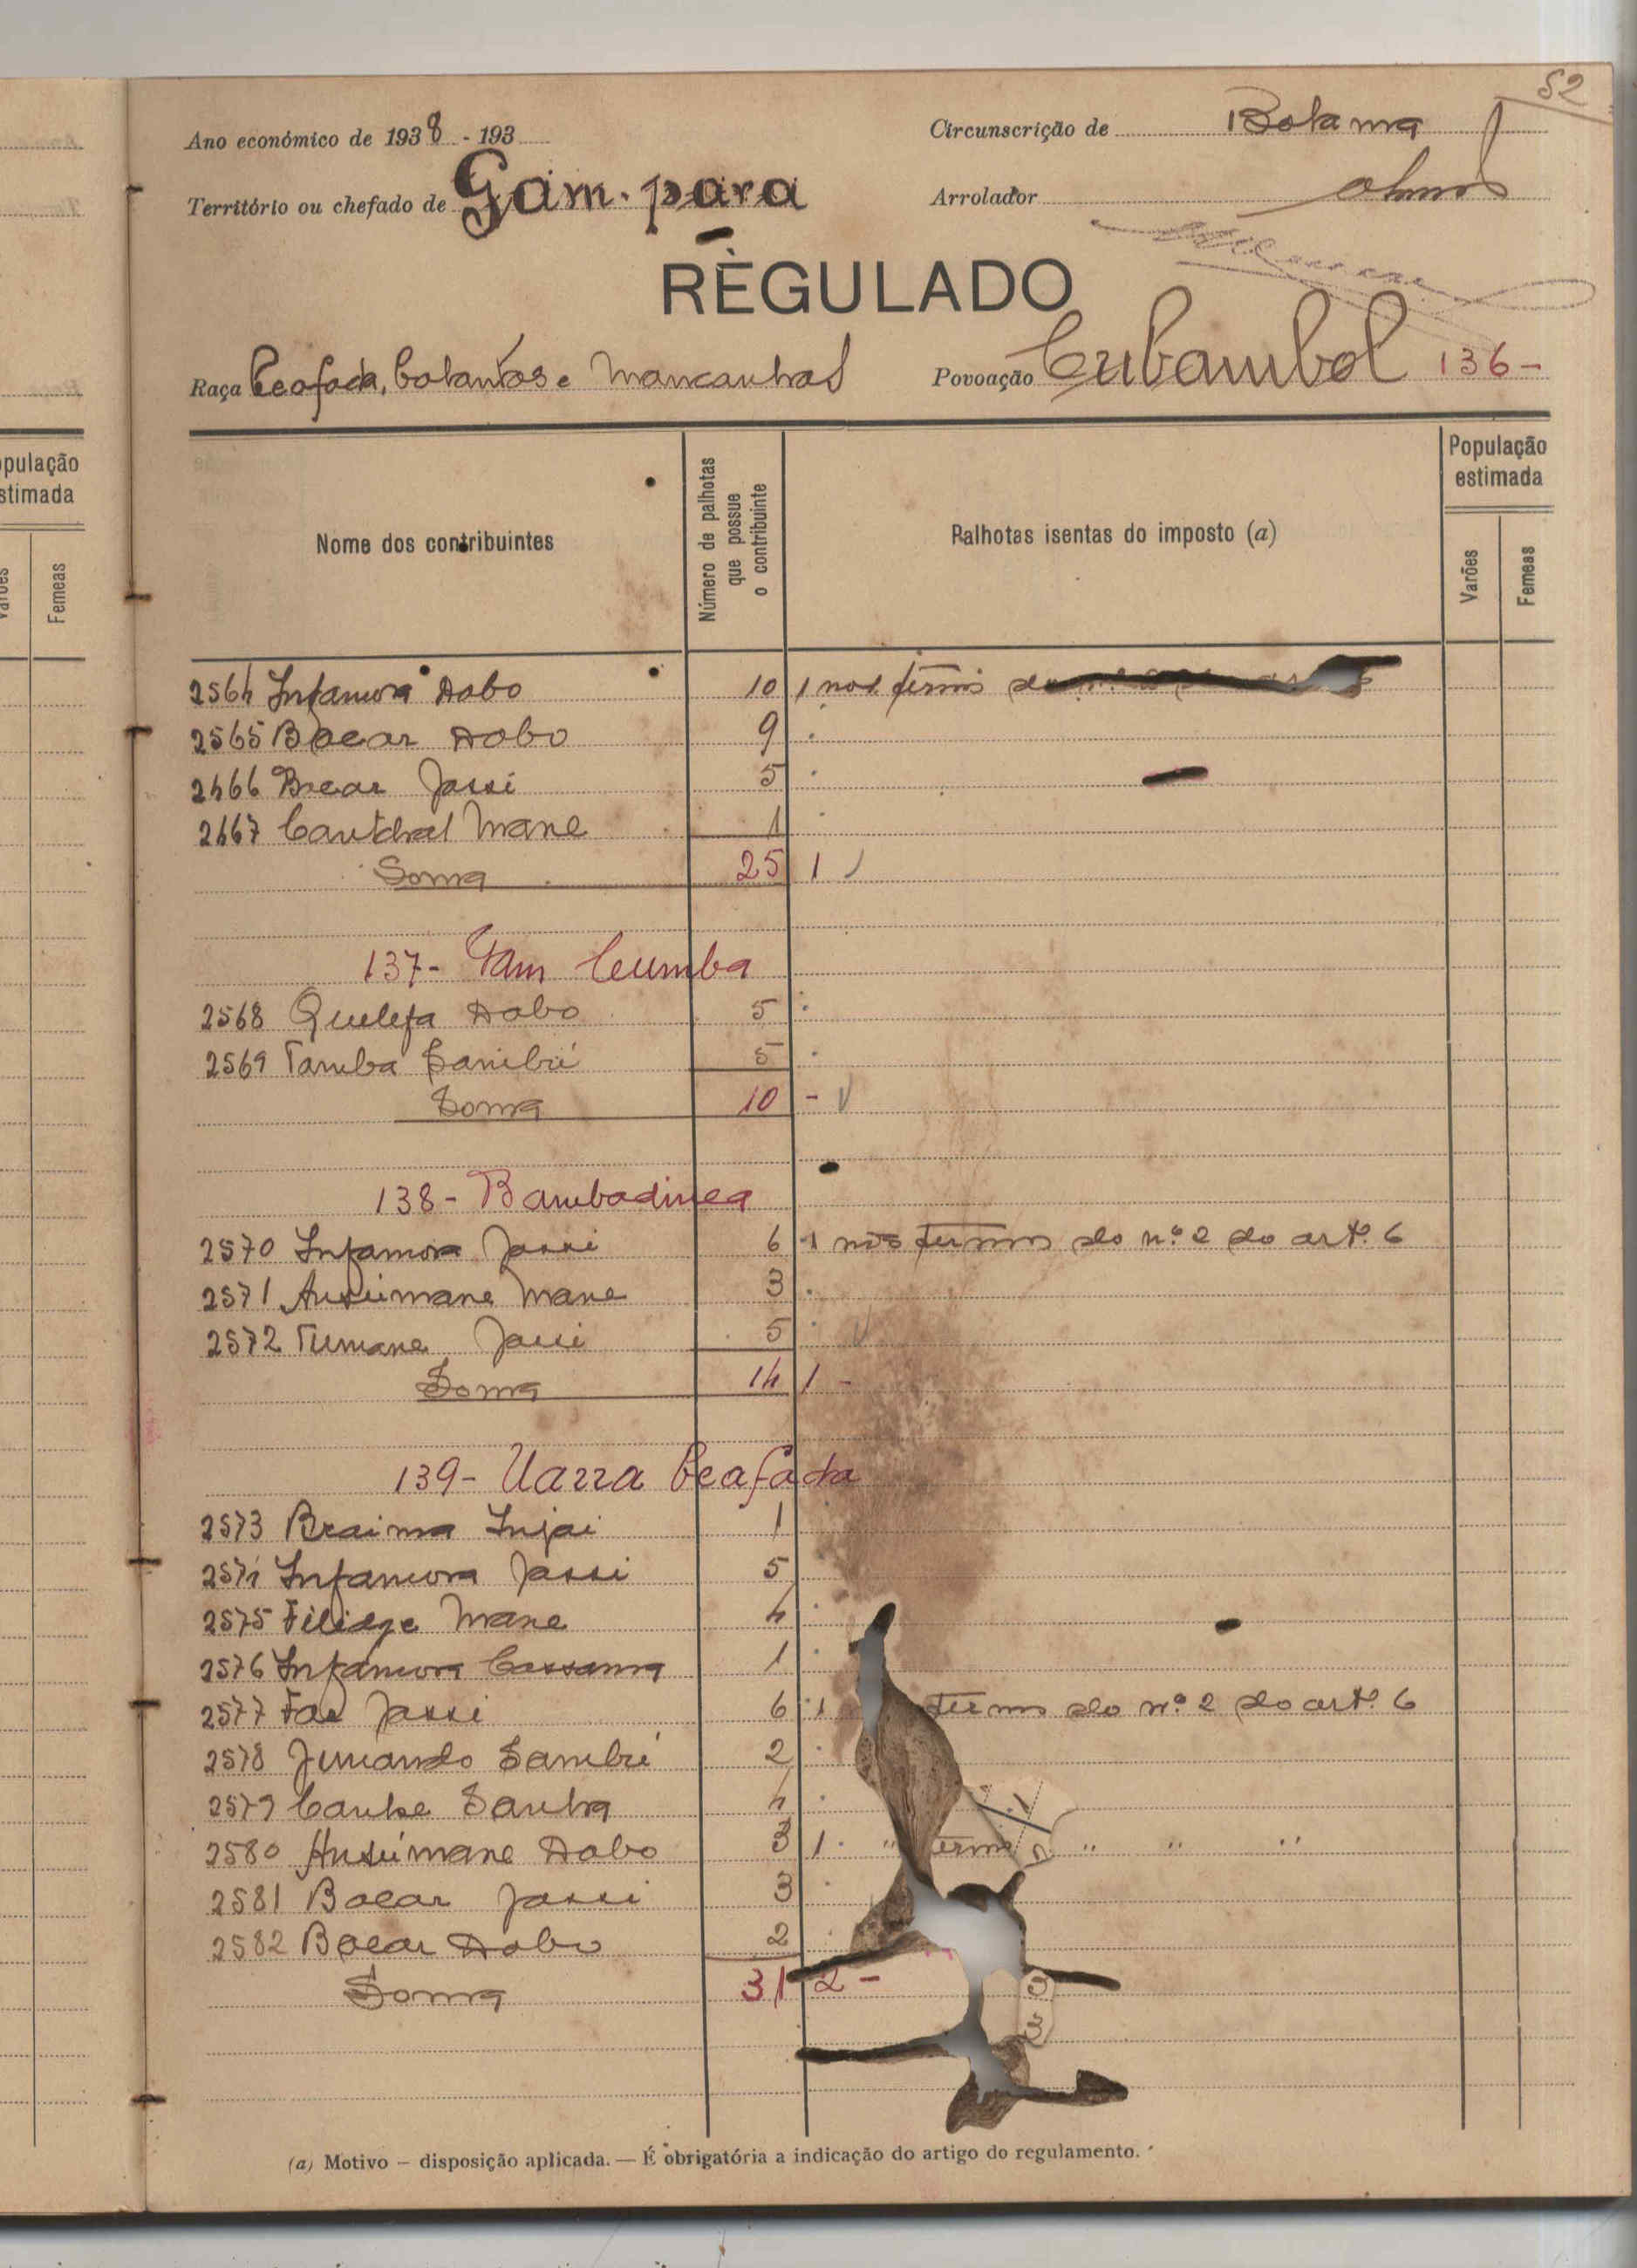 52
Ano económico de 1938 - 193
Circunscrição de Bolama
Território ou chefado de Gam-para
Arrolador
RÈGULADO
Raça Beafada, balantas e mancanhas
Povoação Cubambol 136-
pulação
stimada
Femeas
Nome dos contribuintes
Número de palhotas que possue o contribuinte
Palhotas isentas do imposto (a)
População estimada
Varões
Femeas
2564 Infamora Dabo 10 1 nos termos do
2565 Bacar Dabo 9
2466 Bacar Jassi 5
2467 Mane 1
Soma 25 1
137- Tam Cumba
2568 Quelefa Dabo 5
2569 Tamba Sambú 5
Soma 10 -
138- Bambadinca
2570 Infamora Jassi 6 1 nos termos do n.º 2 do art.º 6
2571 Ansumane Mane 3
2572 Tumane Jassi 5
Soma 14 1 -
139- Uarra beafada
2573 Braima Injai 1
2574 Infamora Jassi 5
2575 Mane 4
2576 Infamora Cassama 1
2577 Jassi 6 1 termos do n.º 2 do art.º 6
2578 Sambú 2
2579 4
2580 Ansumane Dabo 3 1 " termo " " "
2581 Bacar Jassi 3
2582 Bacar Dabo 2
Soma 31 2 -
(a) Motivo — disposição aplicada. — É obrigatória a indicação do artigo do regulamento.